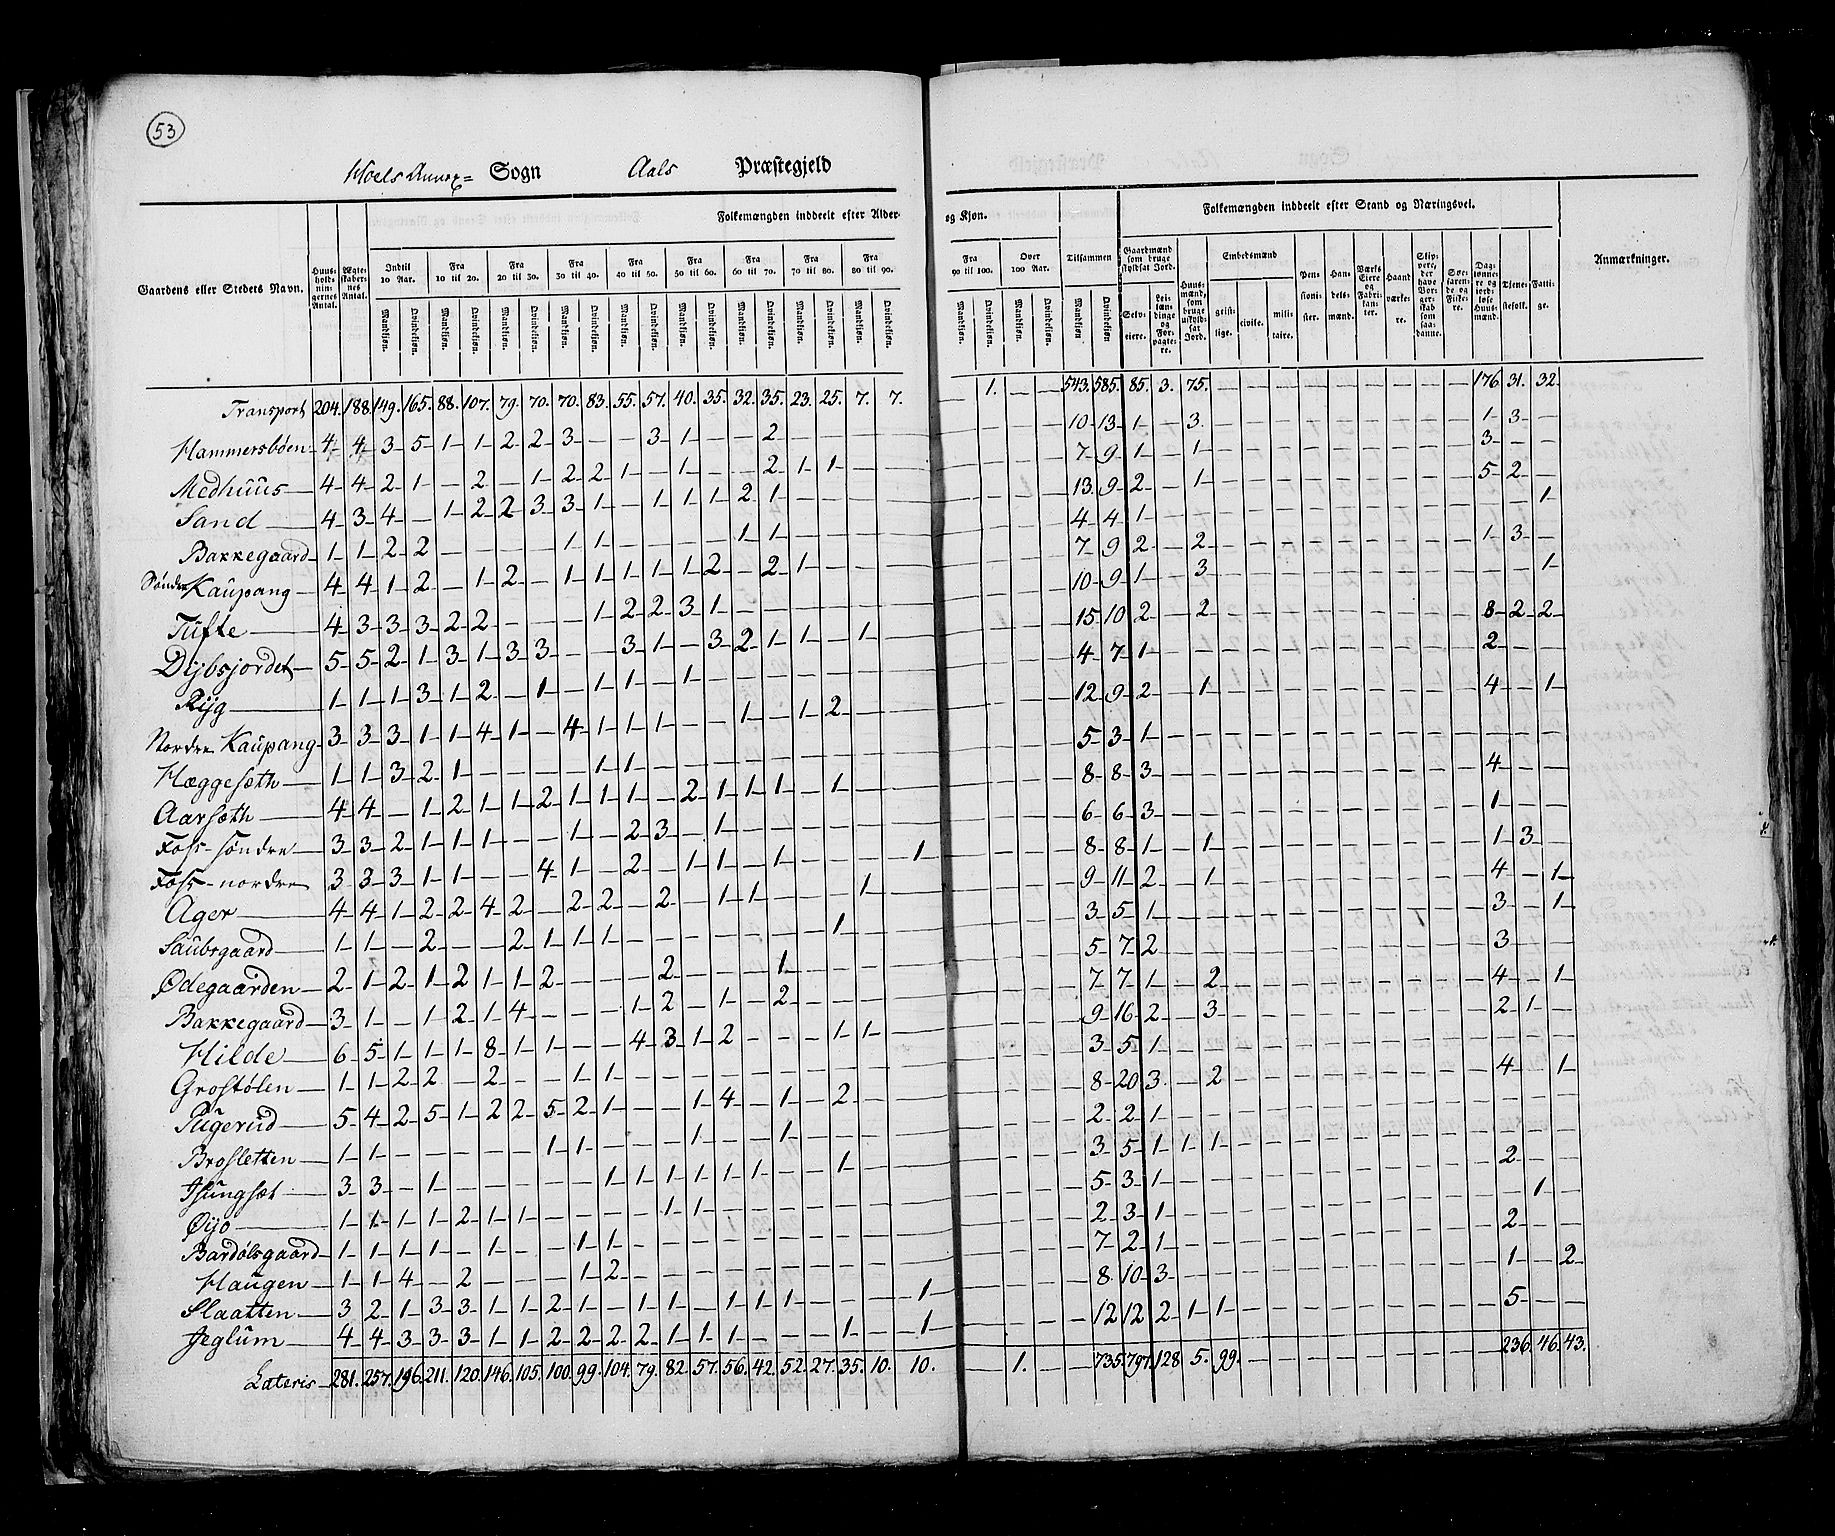 53
Hoels Annex= Sogn Aals Præstegjeld
Folkemængden inddeelt efter Alder- og Kjøn. Folkemængden inddeelt efter Stand og Næringsvei.
Gaardens eller Stedets Navn. Huusholdningernes Antal. Ægteskabernes Antal. Indtil 10 Aar. Fra 10 til 20. Fra 20 til 30. Fra 30 til 40. Fra 40 til 50. Fra 50 til 60. Fra 60 til 70. Fra 70 til 80. Fra 80 til 90. Fra 90 til 100. Over 100 Aar. Tilsammen
Mandkjøn. Qvindekjøn.
Gaardmænd som bruge skyldsat Jord. Selveiere. Leilændinge og Forpagtere. Huusmænd, som bruge uskyldsat Jord. Embedsmænd geistlige. civile. militaire. Pensionister. Handelsmænd. Værks Eiere og Fabrikanter. Haandværkere. Slippere, der have Borgerskab som saadanne. Søefarende og Fiskere. Daglønnere og jordløse Huusmænd. Tjenestefolk. Fattige. Anmærkninger.
Transport 204. 188. 149. 165. 88. 107. 79. 70. 70. 83. 55. 57. 40. 35. 32. 35. 23. 25. 7. 7. — 1. — — 543. 585. 85. 3. 75. — 176 31. 32.
Hammersbøen 4 4 3 5 1 1 2 2 3 — — 3 1 — — 2 — 10 13 1 — 3 — 1 3 —
Medhuus 4 4 2 1 — 2 — 1 2 2 1 — 1 — — 2 1 1 — 7 9 1 — 1 — 3 — —
Sand 4 3 4 — 1 2 2 3 3 1 — 1 1 1 2 1 — 13 9 2 — 1 — 5 2 —
Bakkegaard 1 1 2 2 — — — — 1 1 — — — — 1 1 — 4 4 1 — — 1
Søndre Kaupang 4 4 1 2 — 1 2 — 1 1 1 1 1 2 — 2 1 — 7 9 2 — 2 — 1 3 —
Tufte 4 3 3 3 2 2 — — — 1 2 2 3 1 — 10 9 1 — 3 — — — 1
Dybsjordet 5 5 2 1 3 1 3 3 — — 3 1 — 3 2 1 1 — 1 — 15 10 2 — 2 — 8 2 2
Ryg 1 1 1 3 1 2 — 1 — 1 1 — 1 — 4 7 1 — 2 — —
Nordre Kaupang 3 3 3 1 1 4 1 — 4 1 1 1 — — 1 — 1 2 — 12 9 2 — 1 — 4 — 1
Hæggesæth 1 1 3 2 1 — — — — 1 1 — 5 3 1 —
Aarsæth 4 4 — 1 2 1 1 2 1 1 1 — 2 1 1 1 — 1 — 8 8 3 — 4 — —
Foss søndre 3 3 2 1 1 1 — — 1 — 2 3 — 1 — 6 6 3 — 1 — —
Foss-nordre 3 3 3 1 1 — — 4 1 — 2 — 1 1 — 1 — — — 1 8 8 1 — 1 — 1 3 —
Ager 4 4 1 2 2 4 2 — 2 2 — 2 — 1 1 — — — 1 — 9 11 2 — 1 — 4 — 1
Saubrgaard 1 1 — 2 — — 2 1 1 1 — — — — — — — 1 — 3 5 1 — 3 — 1
Ødegaarden 2 1 2 1 2 1 1 2 — — — 2 — — — 1 — 5 7 2 — 3 — —
Bakkegaard 3 1 — 1 2 1 4 — — — 1 2 — 1 — 2 — 7 7 1 — 2 — 4 — 1
Hilde 6 5 1 1 1 8 1 1 — — 4 3 1 2 — — — 1 1 — 9 16 2 — 3 — 2 1 —
Grostølen 1 1 2 2 — 2 — — 1 1 — 3 5 1 —
Rugerud 5 4 2 5 1 2 2 5 2 1 — — 1 4 — 1 — 2 — 8 20 3 — 2 — 4 — 1
Brosletten 1 1 — — — — — 1 1 — — — 1 — — 1 — 2 2 1 —
Thungsæt 3 3 — 1 — — — — — 1 1 1 1 1 1 — — 1 — 3 5 1 1 1 —
Øyo 1 1 1 1 2 1 1 — — — — 1 1 — 5 3 1 — 2 — —
Bardølsgaard 1 1 1 1 — 1 — — 1 1 — 2 3 1 — — 1 —
Haugen 1 1 4 — 2 — — — 1 2 — 7 2 1 — 2 — —
Slaatten 3 2 1 3 3 1 1 2 1 — 1 1 — 1 1 1 — — — 1 8 10 3 — 1 — 2
Jeglum 4 4 3 3 3 1 1 2 2 2 2 1 1 1 — — — 1 — 1 12 12 2 1 1 — 5 — —
Lateris 281. 257. 196. 211. 120. 146. 105. 100. 99. 104. 79. 82. 57. 56. 42. 52. 27. 35. 10. 10. — 1. — — 735. 797. 128 5. 99. — 236. 46. 43.